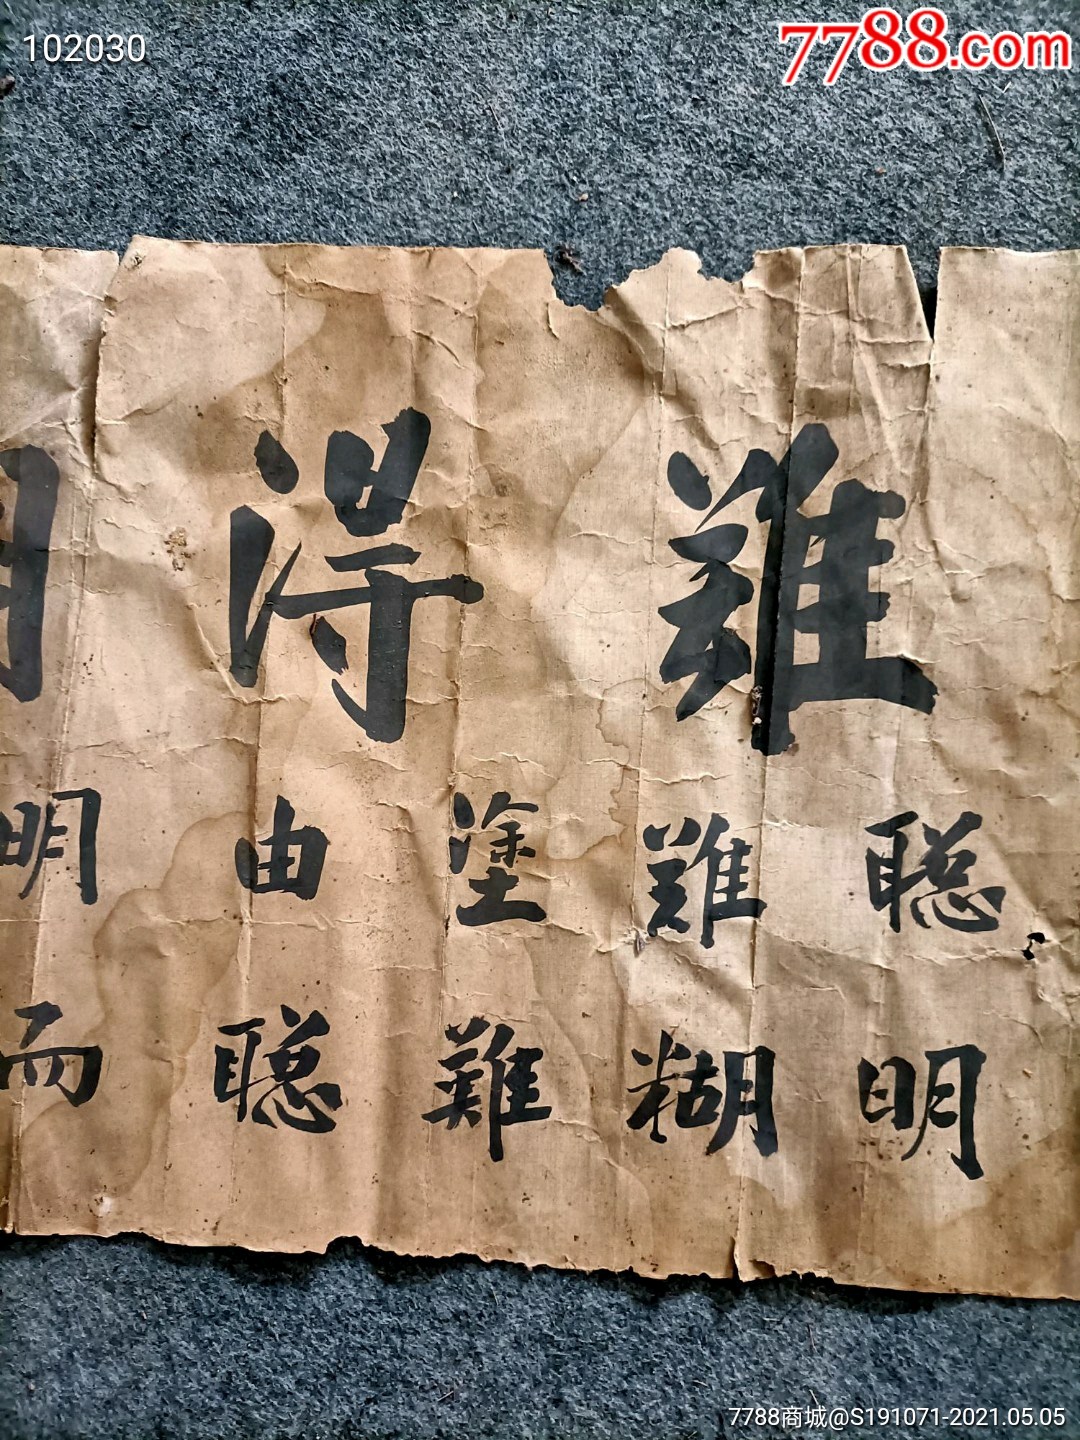 102030
7788.com
難得
聰明
難糊
塗難
由聰
明而
7788商城@S191071-2021.05.05